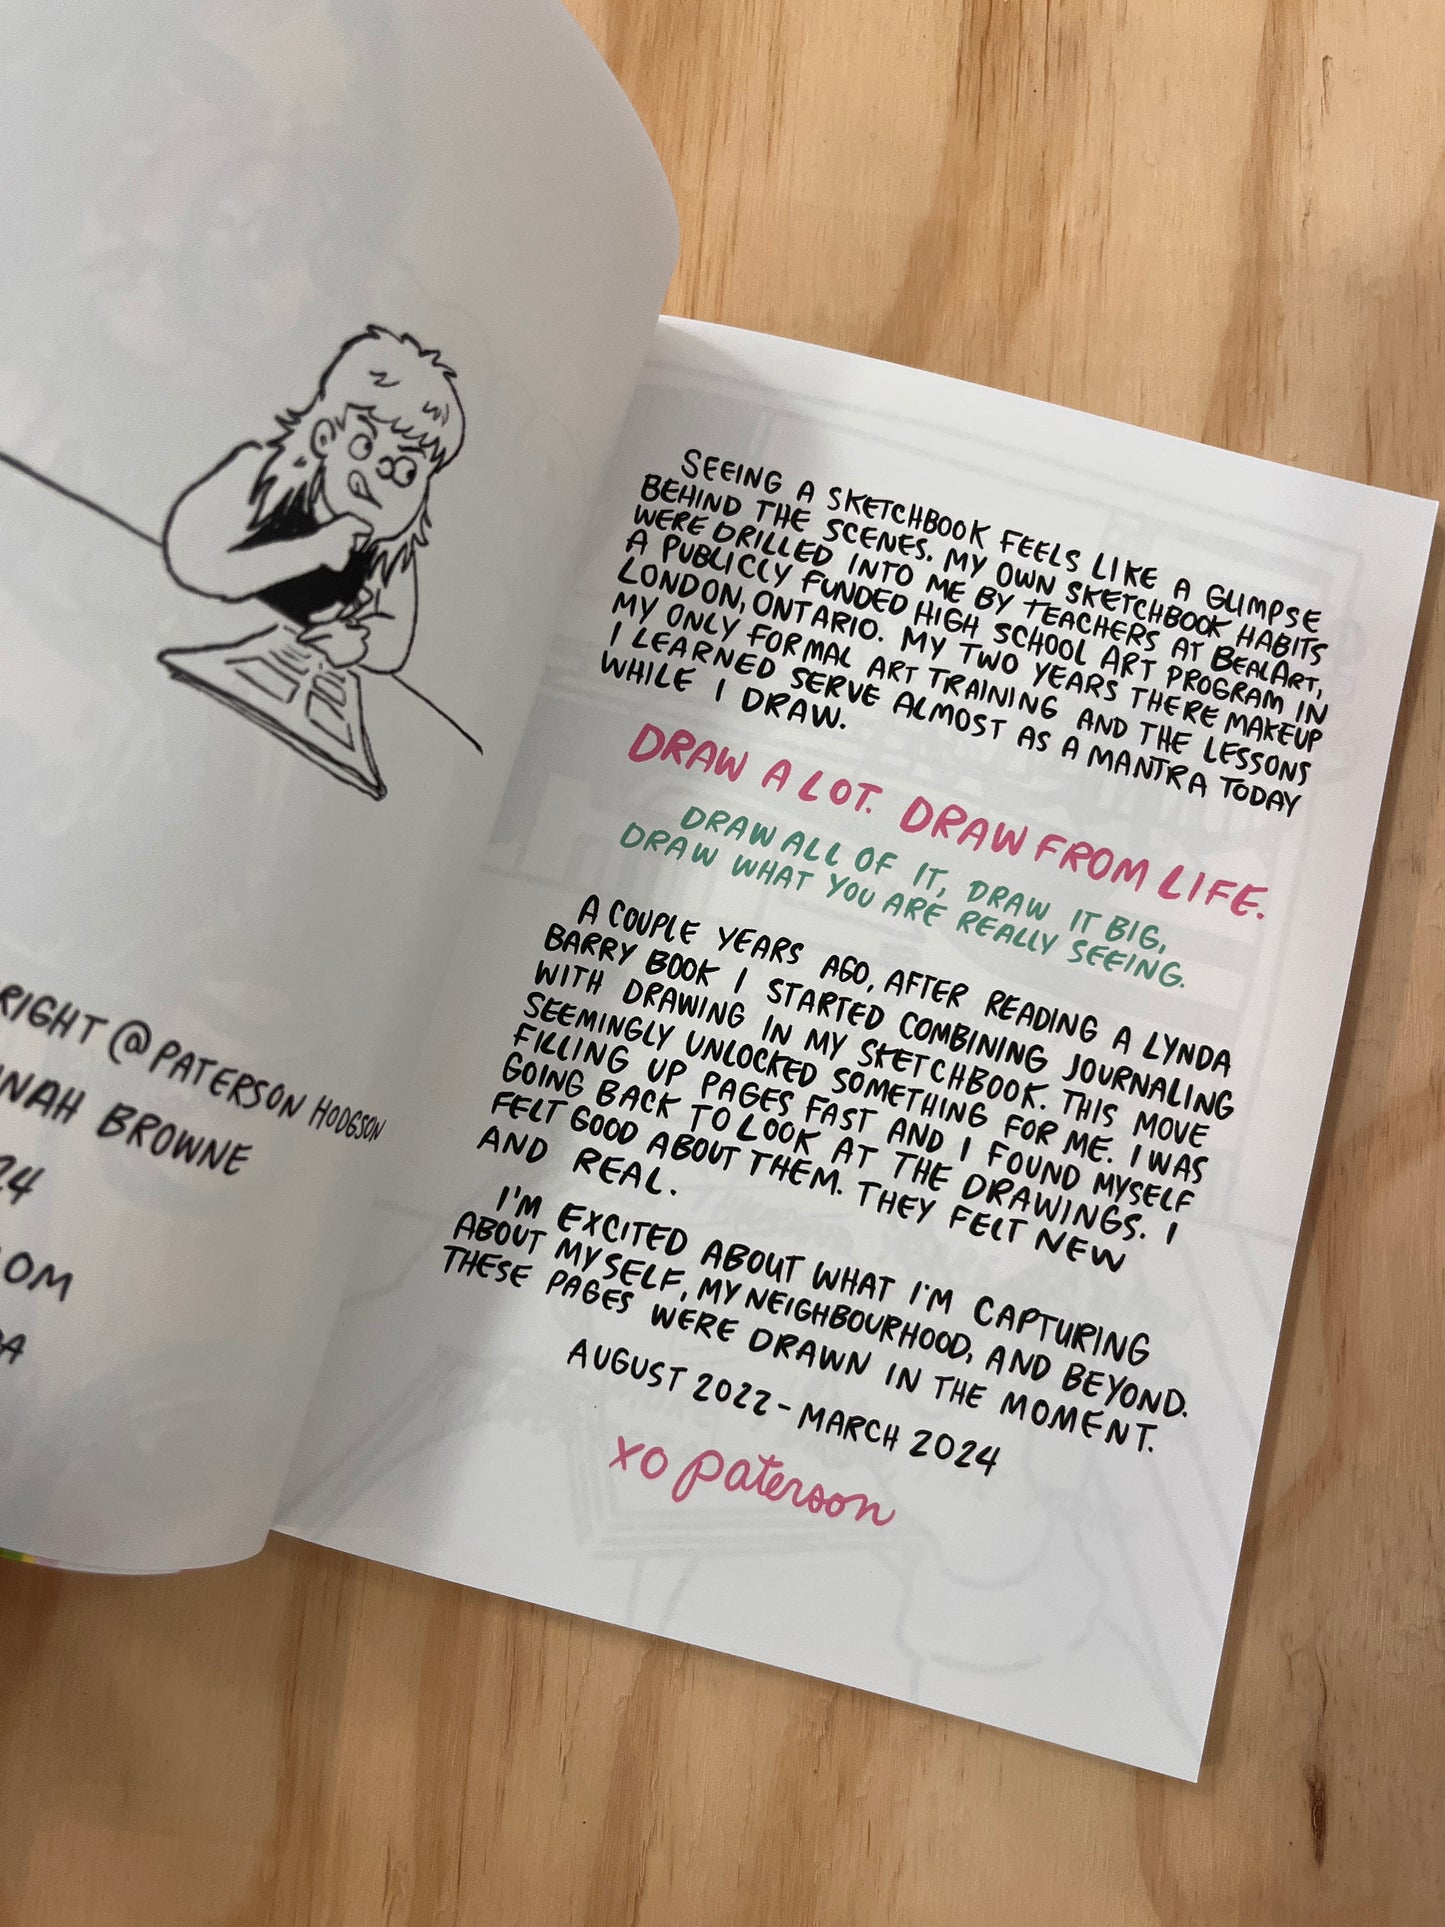 RIGHT @PATERSON HODGSON
NAH BROWNE
24
OM
DA
SEEING A SKETCHBOOK FEELS LIKE A GLIMPSE
BEHIND THE SCENES. MY OWN SKETCHBOOK HABITS
WERE DRILLED INTO ME BY TEACHERS AT BEALART,
A PUBLICLY FUNDED HIGH SCHOOL ART PROGRAM IN
LONDON, ONTARIO. MY TWO YEARS THERE MAKEUP
MY ONLY FORMAL ART TRAINING AND THE LESSONS
I LEARNED SERVE ALMOST AS A MANTRA TODAY
WHILE I DRAW.
DRAW A LOT. DRAW FROM LIFE.
DRAW ALL OF IT, DRAW IT BIG,
DRAW WHAT YOU ARE REALLY SEEING.
A COUPLE YEARS AGO, AFTER READING A LYNDA
BARRY BOOK I STARTED COMBINING JOURNALING
WITH DRAWING IN MY SKETCHBOOK. THIS MOVE
SEEMINGLY UNLOCKED SOMETHING FOR ME. I WAS
FILLING UP PAGES FAST AND I FOUND MYSELF
GOING BACK TO LOOK AT THE DRAWINGS. I
FELT GOOD ABOUT THEM. THEY FELT NEW
AND REAL.
I'M EXCITED ABOUT WHAT I'M CAPTURING
ABOUT MYSELF, MY NEIGHBOURHOOD, AND BEYOND.
THESE PAGES WERE DRAWN IN THE MOMENT.
AUGUST 2022 - MARCH 2024
xo Paterson